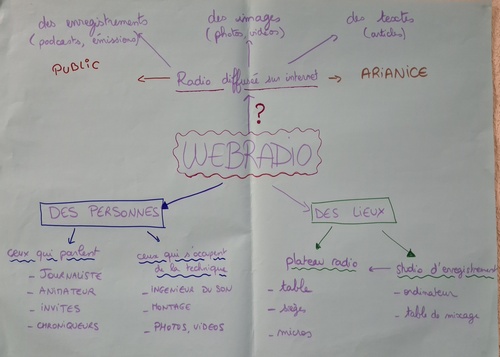 des enregistrements
(podcasts, émissions)
des images
(photos, vidéos)
des textes
(articles)
PUBLIC
Radio diffusée sur internet
ARIANICE
?
WEBRADIO
DES PERSONNES
DES LIEUX
ceux qui parlent
- JOURNALISTE
- ANIMATEUR
- INVITES
- CHRONIQUEURS
ceux qui s'occupent
de la technique
- INGENIEUR DU SON
- MONTAGE
- PHOTOS, VIDEOS
plateau radio
- table
- sièges
- micros
studio d'enregistrement
- ordinateur
- table de mixage